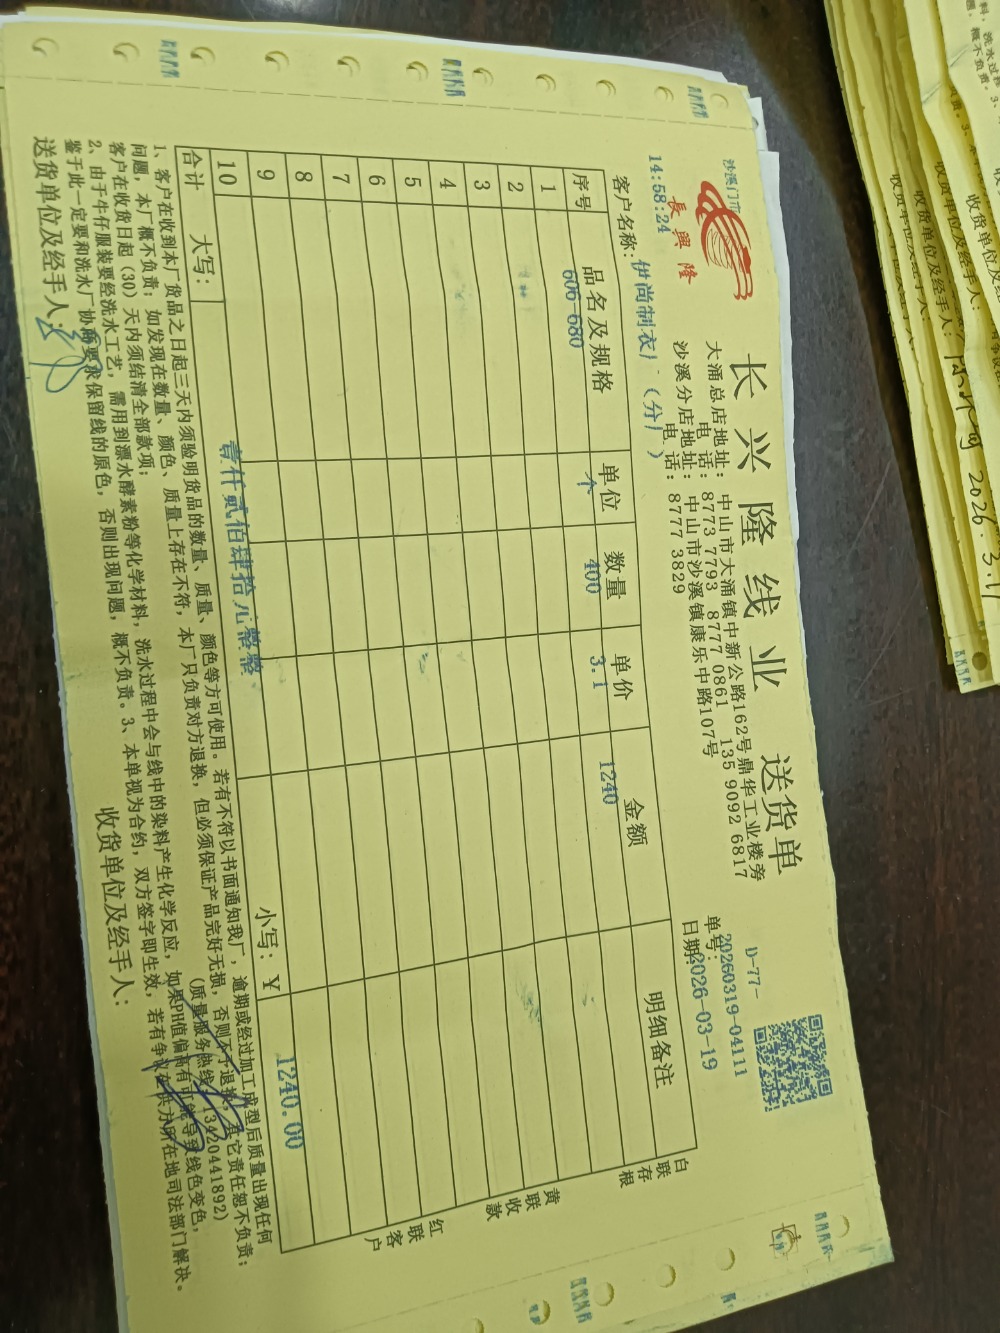 长兴隆线业 送货单
沙溪门市
長興隆
14:58:24
大涌总店地址: 中山市大涌镇中新公路162号鼎华工业楼旁
电话: 8773 7793 8777 0861 135 9092 6817
沙溪分店地址: 中山市沙溪镇康乐中路107号
电话: 8777 3829
D-77-
单号: 20260319-04111
日期: 2026-03-19
客户名称: 伊尚制衣厂(分厂)
序号 品名及规格 单位 数量 单价 金额 明细备注
1 606-680 个 400 3.1 1240
2
3
4
5
6
7
8
9
10
合计 大写: 壹仟贰佰肆拾元整整 小写: Y 1240.00
白联存根
黄联收款
红联客户
1、客户在收到本厂货品之日起三天内须验明货品的数量、质量、颜色等方可使用。若有不符以书面通知我厂,逾期或经过加工成型后质量出现任何
问题,本厂概不负责;如发现在数量、颜色、质量上存在不符,本厂只负责对方退换,但必须保证产品完好无损,否则不予退换,其它责任恕不负责;
客户在收货日起(30)天内须结清全部款项; (质量服务热线:13420441892)
2、由于牛仔服装要经洗水工艺,需用到漂水酵素粉等化学材料,洗水过程中会与线中的染料产生化学反应,如果PH值偏高有可能导致线色变色,
鉴于此一定要和洗水厂协商要求保留线的原色,否则出现问题,概不负责。3、本单视为合约,双方签字即生效,若有争议在供方所在地司法部门解决。
送货单位及经手人: 收货单位及经手人:
收货单位及经手人:
2026.3.17